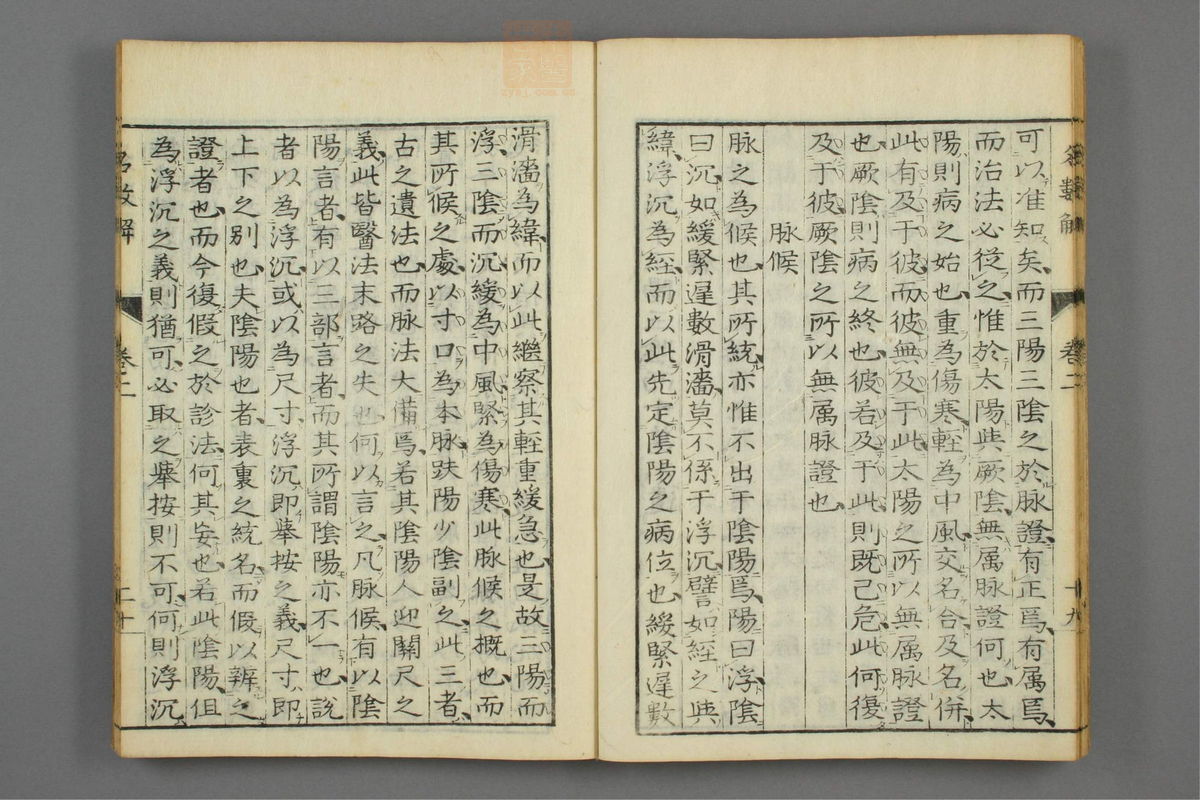 可以准知矣而三陽三陰之於脉證有正焉有属焉
而治法必從之惟於太陽與厥陰無属脉證何也太
陽則病之始也重為傷寒輕為中風交名合及名併
此有及于彼而彼無及于此太陽之所以無属脉證
也厥陰則病之終也彼若及于此則既已危此何復
及于彼厥陰之所以無属脉證也
脉候
脉之為候也其所統亦惟不出于陰陽焉陽曰浮陰
曰沉如緩緊遲數滑濇莫不係于浮沉譬如經之與
緯浮沉為經而以此先定陰陽之病位也緩緊遲數
卷二
十九
滑濇為緯而以此繼察其輕重緩急也是故三陽而
浮三陰而沉緩為中風緊為傷寒此脉候之概也而
其所候之處以寸口為本脉趺陽少陰副之此三者
古之遺法也而脉法大備焉若其陰陽人迎關尺之
義此皆醫法末路之失也何以言之凡脉候有以陰
陽言者有以三部言者而其所謂陰陽亦不一也說
者以為浮沉或以為尺寸浮沉即舉按之義尺寸即
上下之別也夫陰陽也者表裏之統名而假以辨之
證者也而今復假之於診法何其妄也若此陰陽但
為浮沉之義則猶可必取之舉按則不可何則浮沉
名數解
卷二
二十